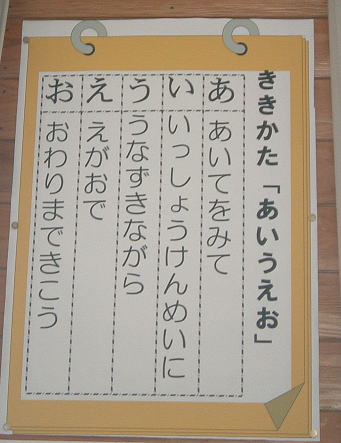 ききかた「あいうえお」
あ あいてをみて
い いっしょうけんめいに
う うなずきながら
え えがおで
お おわりまできこう